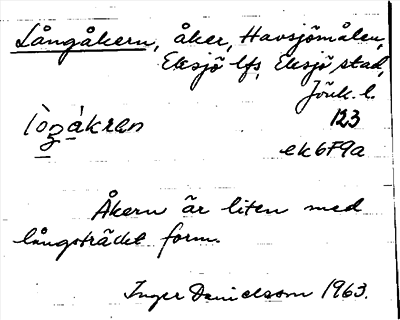 Långåkern, åker, Havsjömålen,
Eksjö lfs, Eksjö stad,
Jönk. l.
123
ek6F9a
Åkern är liten med
långsträckt form.
Inger Danielsson 1963.